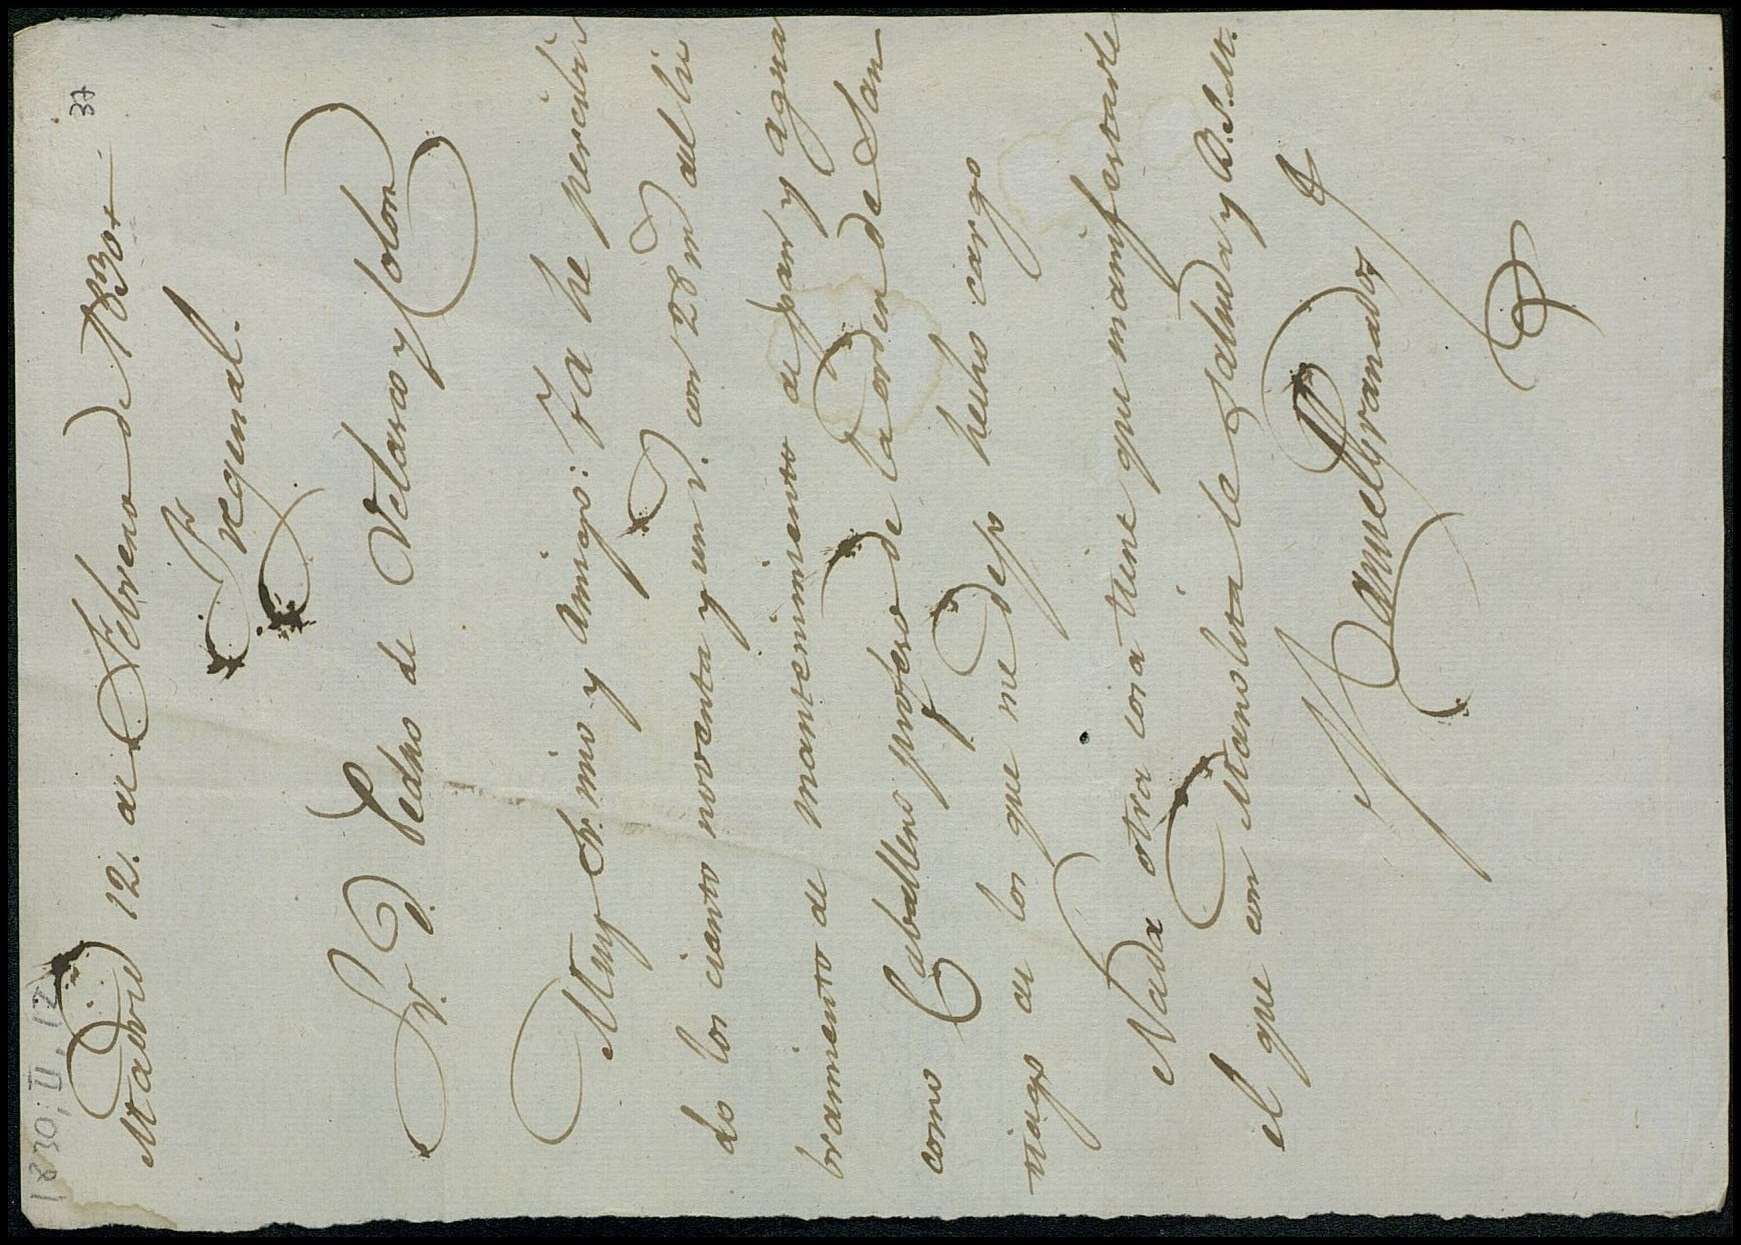 1830, II, 12
37
Madrid 12. de Febrero de 1830
Fregenal.
Sr. D. Pedro de Velasco y Colon
Muy Sr. mio y Amigo: Ya he percibi
do los ciento noventa y un r. con 28 m del li
bramiento de mantenimiento de pan y agua
como Caballero profeso de la orden de San
tiago de los que me dejo hecho cargo
Nada otra cosa tiene que manifestarle
el que con Manolita le saluda y B.S.M.
Manuel Granados